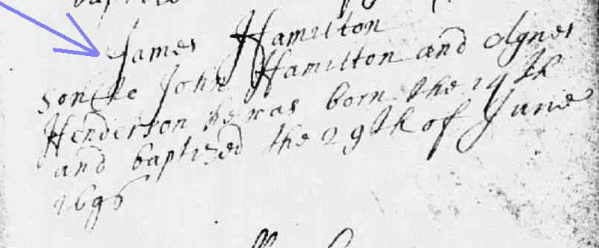 baptized
James Hamilton
Son to John Hamilton and Agnes
Henderson he was born the 14th
and baptized the 29th of June
1696